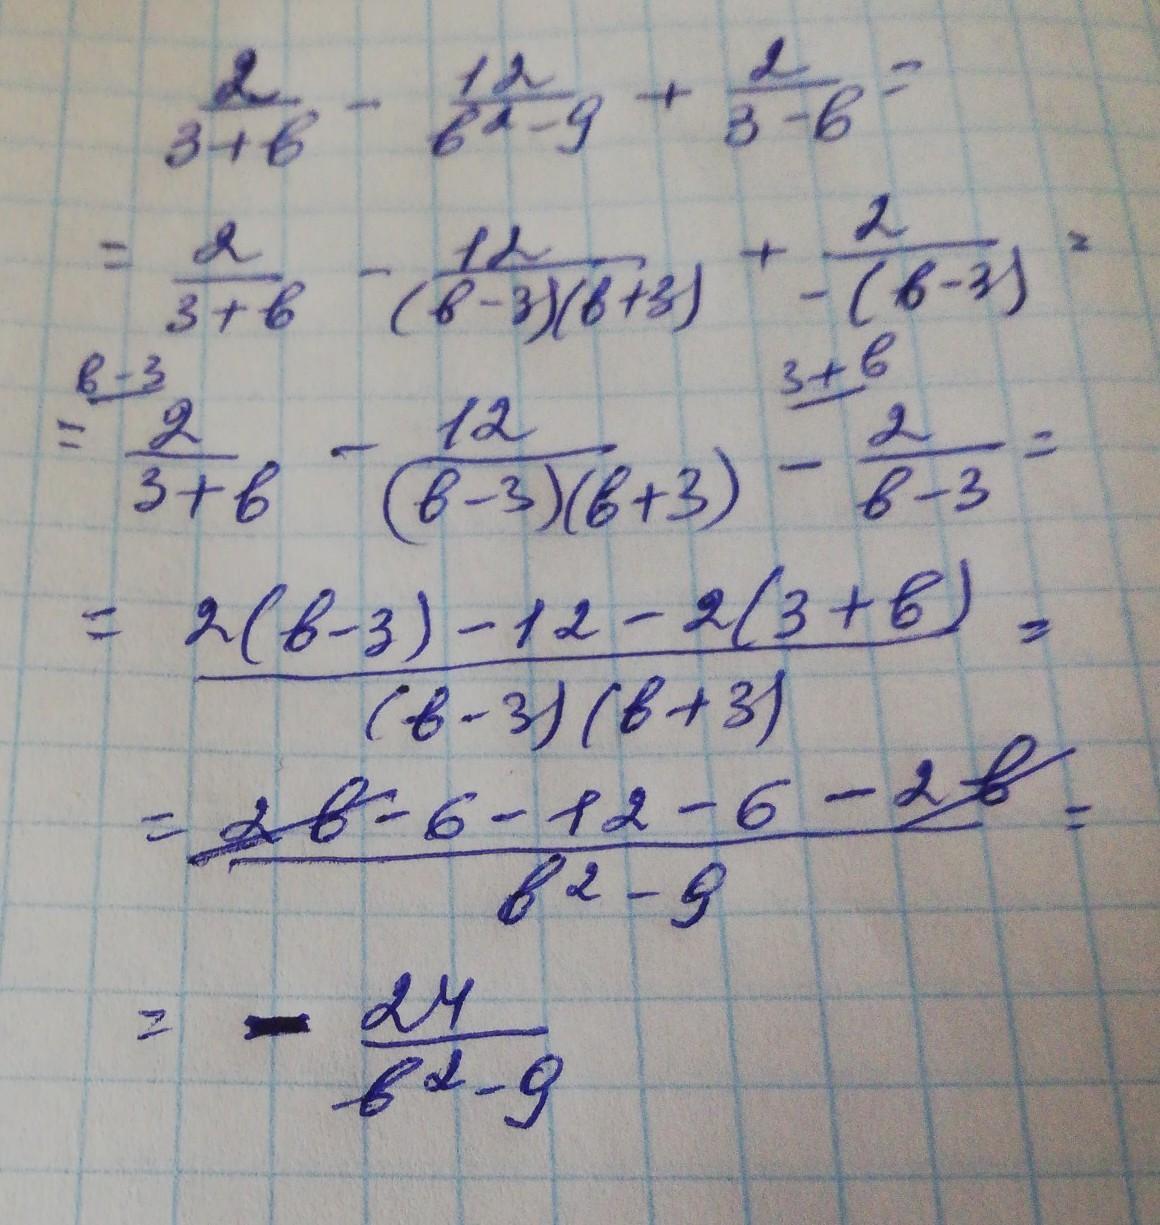 2/(3+в) - 12/(в²-9) + 2/(3-в) =
= 2/(3+в) - 12/((в-3)(в+3)) + 2/(-(в-3)) =
в-3 3+в
= 2/(3+в) - 12/((в-3)(в+3)) - 2/(в-3) =
= (2(в-3)-12-2(3+в))/((в-3)(в+3)) =
= (2в-6-12-6-2в)/(в²-9) =
= - 24/(в²-9)